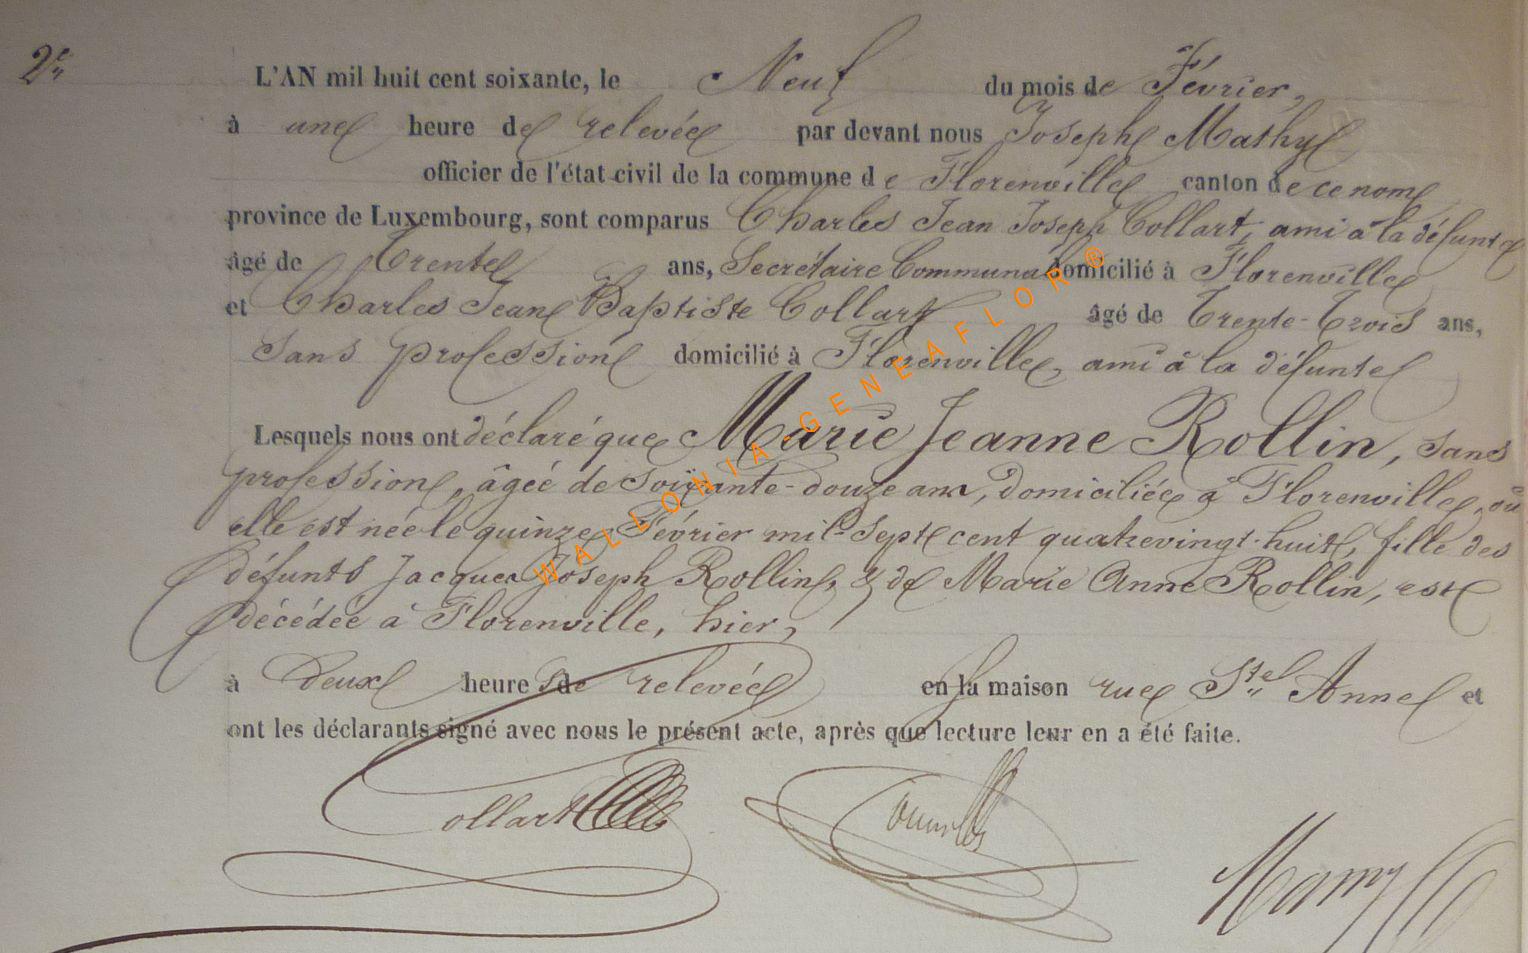 2e
L'AN mil huit cent soixante, le Neuf du mois de Février,
à une heure de relevée par devant nous Joseph Mathy
officier de l'état civil de la commune de Florenville canton de ce nom
province de Luxembourg, sont comparus Charles Jean Joseph Collart, ami à la défunte
âgé de Trente ans, Secrétaire Communal domicilié à Florenville
et Charles Jean Baptiste Collart âgé de Trente-Trois ans,
sans profession domicilié à Florenville, ami à la défunte
Lesquels nous ont déclaré que Marie Jeanne Rollin, sans
profession, âgée de soixante-douze ans, domiciliée à Florenville, où
elle est née le quinze Février mil-sept cent quatrevingt-huit, fille des
défunts Jacques Joseph Rollin, & de Marie Anne Rollin, est
décédée à Florenville, hier,
à deux heures de relevée en la maison rue Ste Anne et
ont les déclarants signé avec nous le présent acte, après que lecture leur en a été faite.
Collart
WALLONIA-GENEAFLOR®